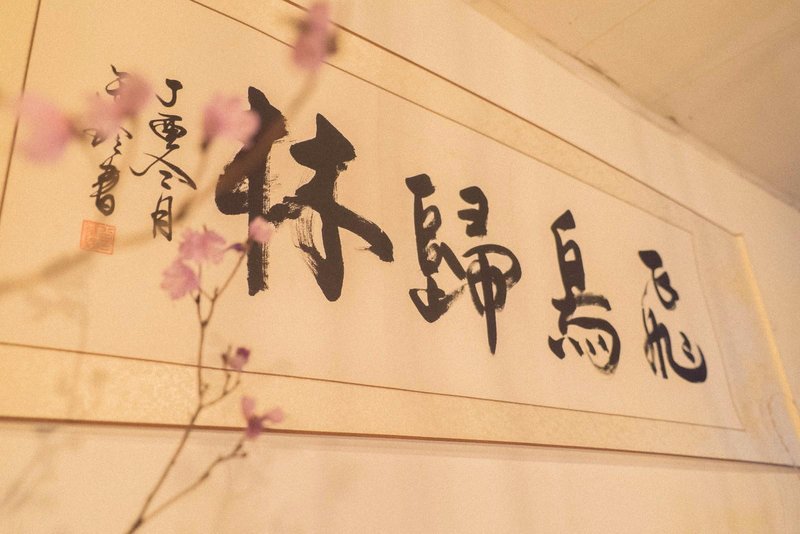 飛鳥歸林
丁酉令月
書